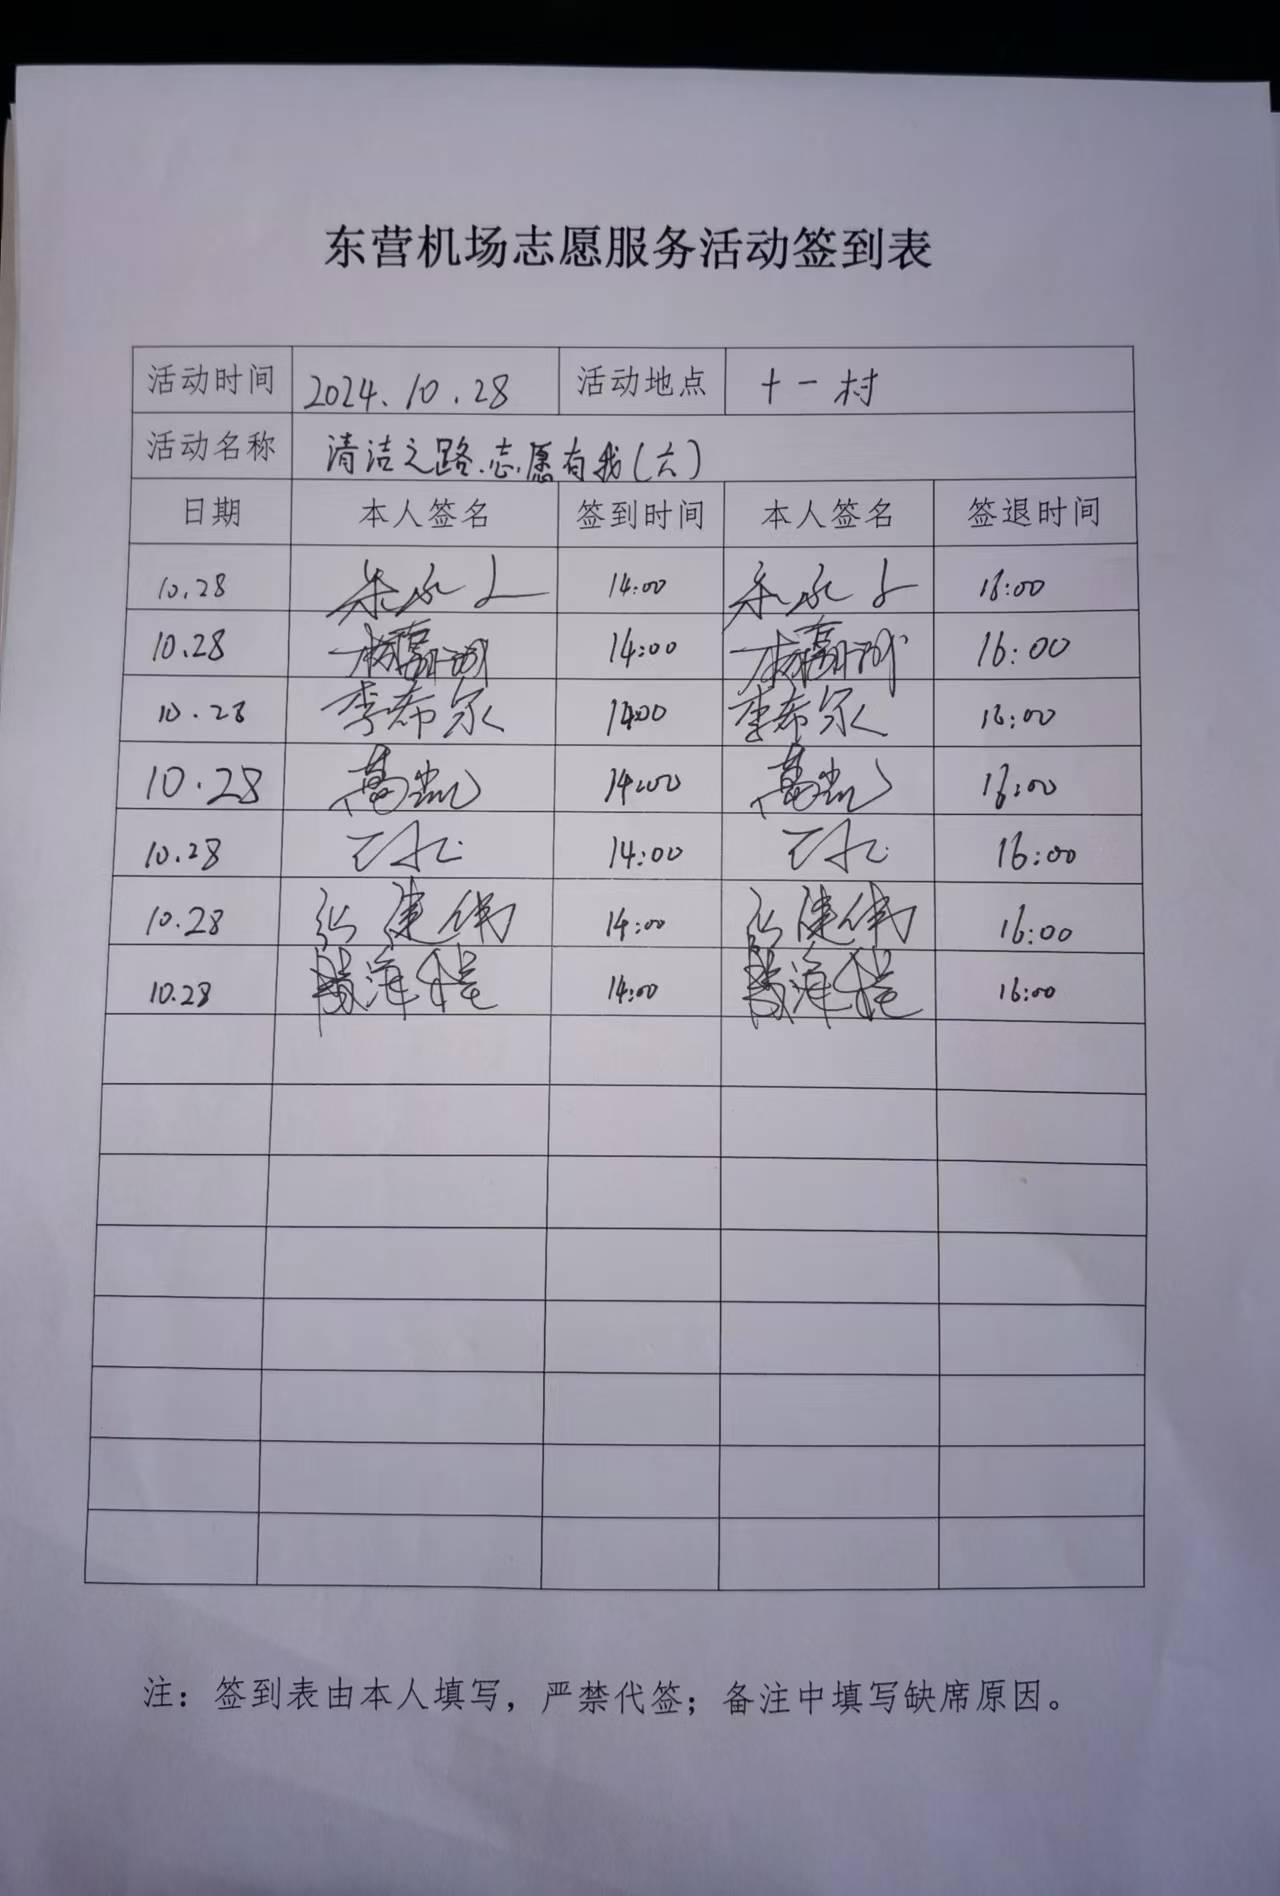 东营机场志愿服务活动签到表
活动时间 2024.10.28 活动地点 十一村
活动名称 清洁之路.志愿有我(六)
日期 本人签名 签到时间 本人签名 签退时间
10.28 14:00 16:00
10.28 14:00 16:00
10.28 李希尔 14:00 李希尔 16:00
10.28 14:00 16:00
10.28 14:00 16:00
10.28 建伟 14:00 建伟 16:00
10.28 14:00 16:00
注：签到表由本人填写，严禁代签；备注中填写缺席原因。